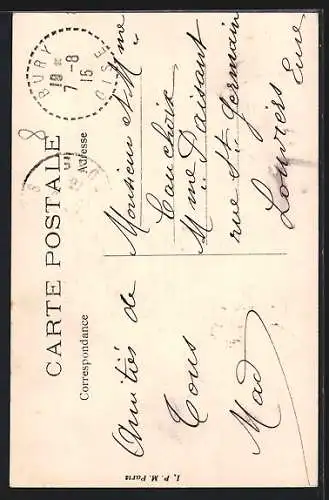 CARTE POSTALE
Correspondance
Adresse
BURY
19
7-8
15
OISE
8
Amitiés de
Tous
Mad
Monsieur et Mme
Cauchoix
Mme Daisant
rue St Germain
Louviers Eure
I. P. M. Paris